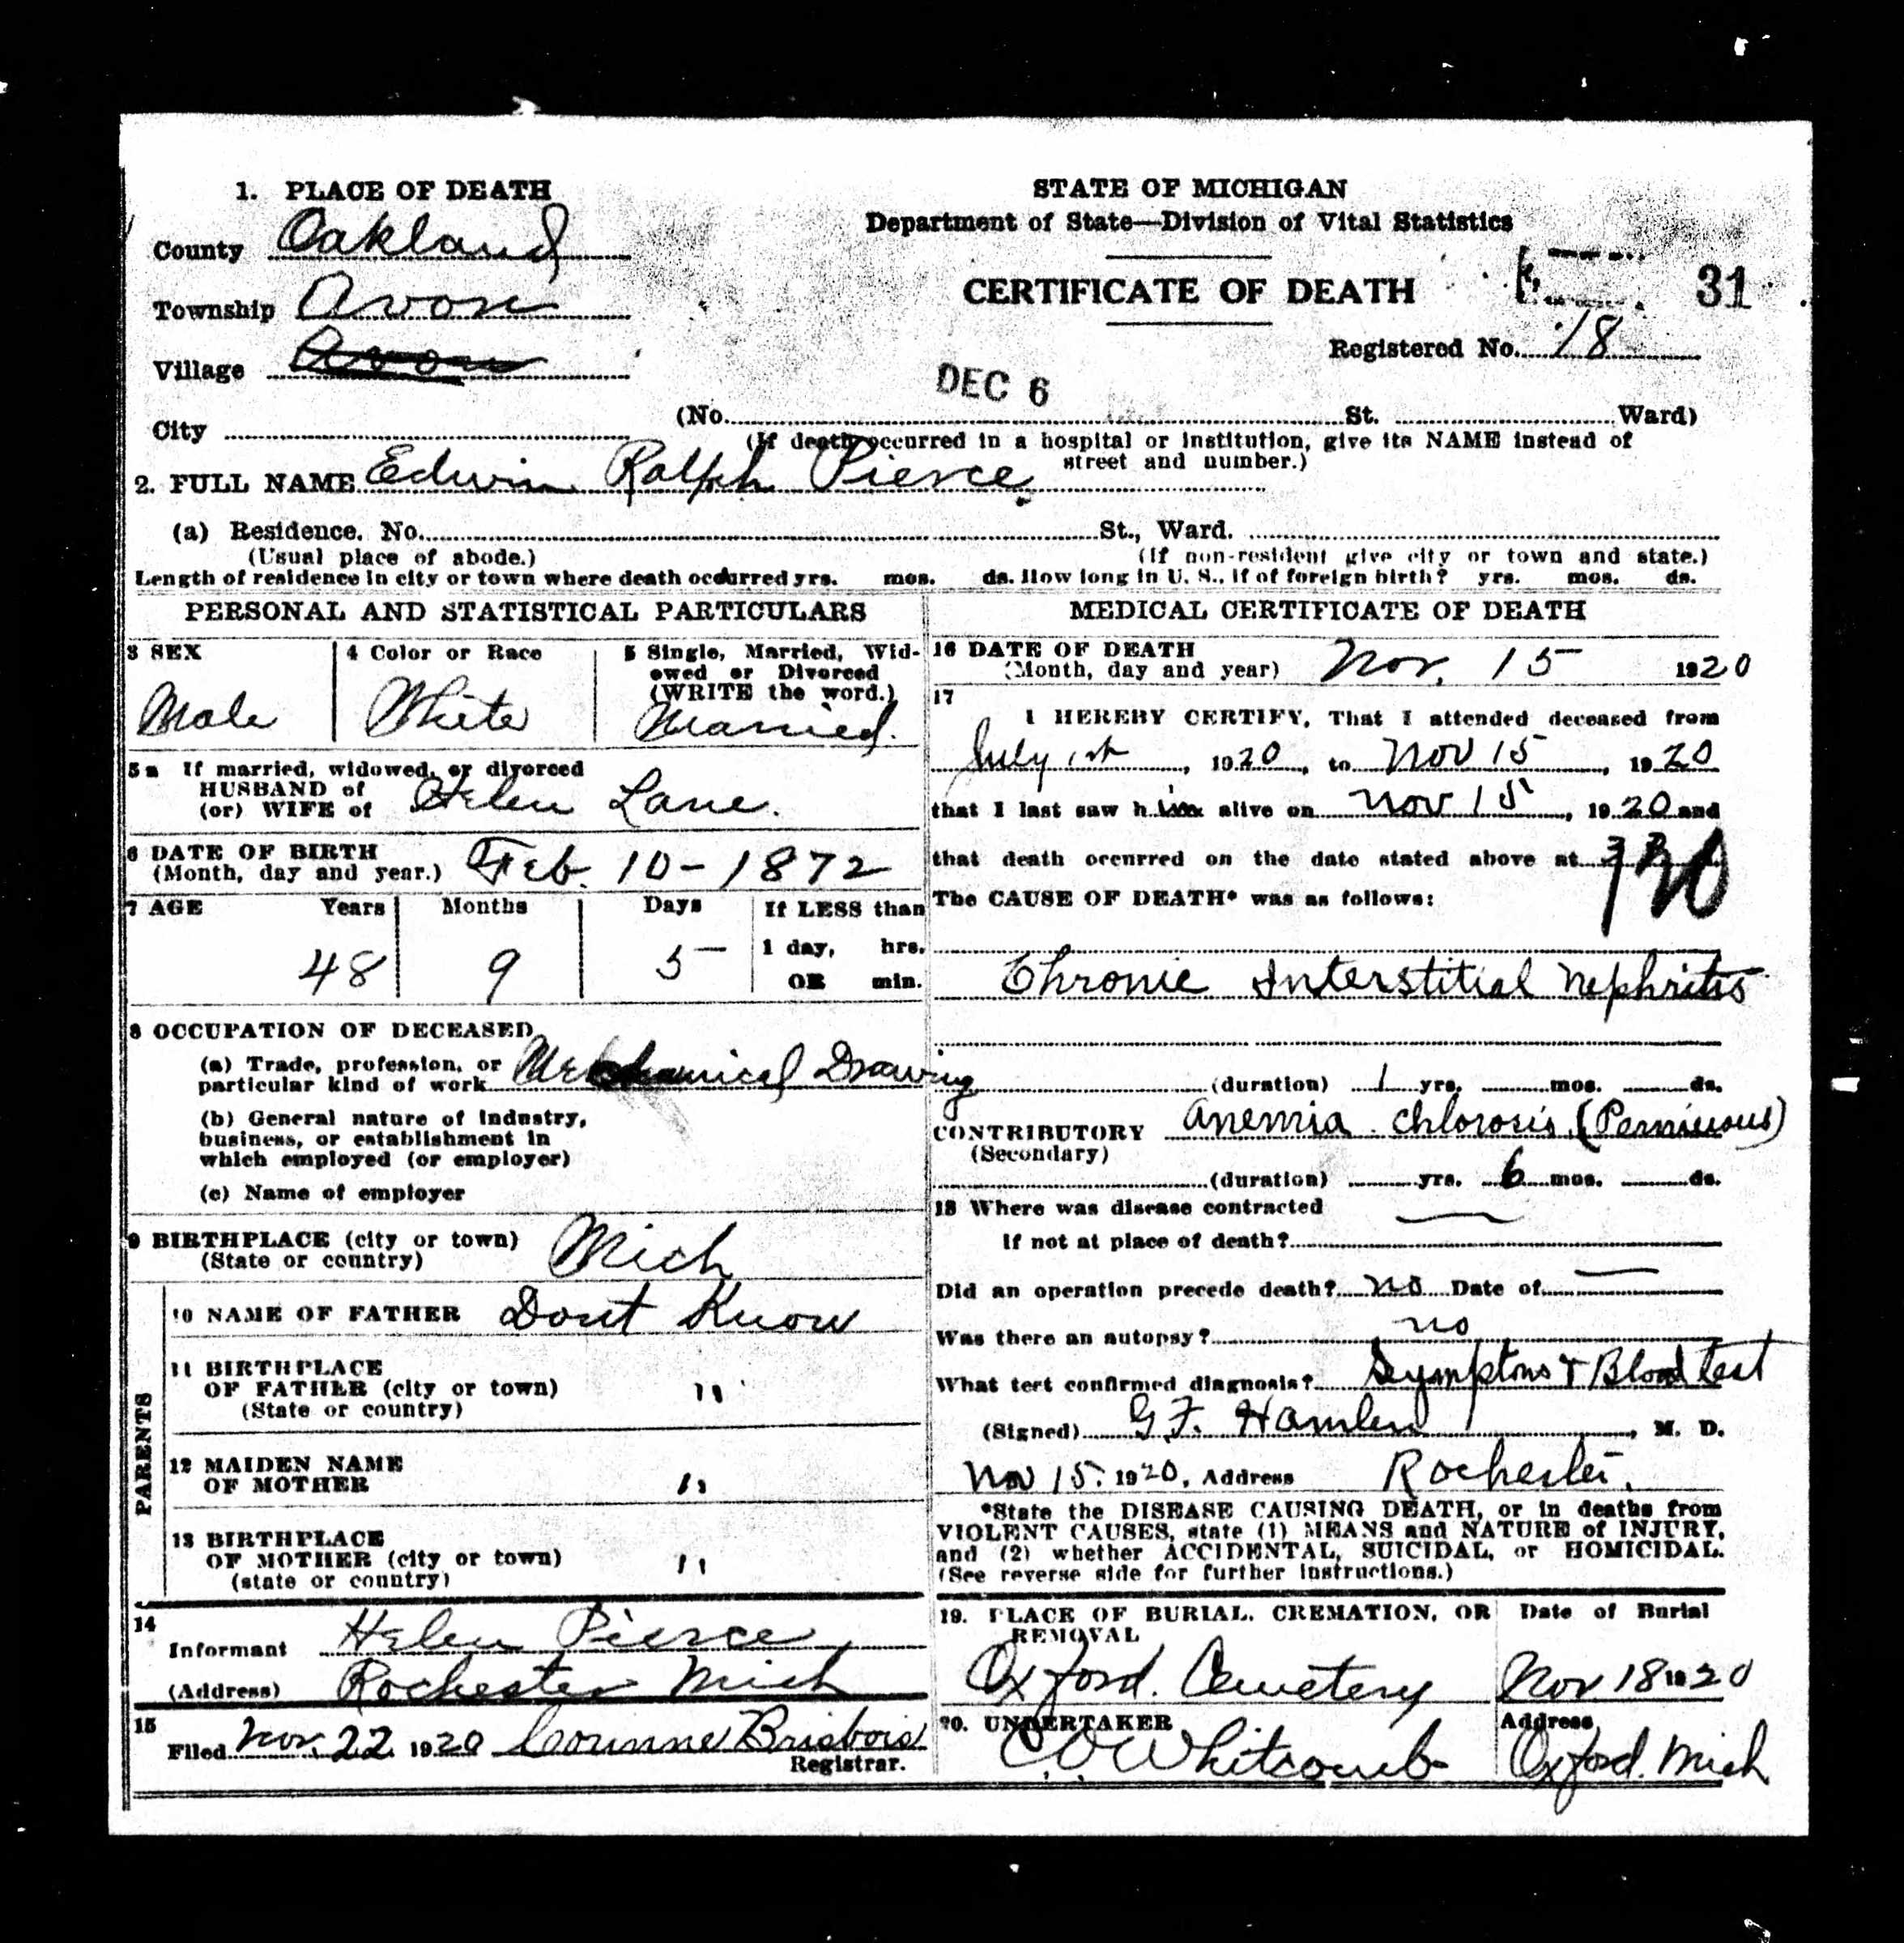 1. PLACE OF DEATH
County Oakland
Township Avon
Village Avon
City
STATE OF MICHIGAN
Department of State—Division of Vital Statistics
CERTIFICATE OF DEATH
31
Registered No. 18
DEC 6
(No. St. Ward)
(If death occurred in a hospital or institution, give its NAME instead of
street and number.)
2. FULL NAME Edwin Ralph Pierce
(a) Residence. No. St., Ward.
(Usual place of abode.) (If non-resident give city or town and state.)
Length of residence in city or town where death occurred yrs. mos. ds. How long in U. S., if of foreign birth? yrs. mos. ds.
PERSONAL AND STATISTICAL PARTICULARS
3 SEX
Male
4 Color or Race
White
5 Single, Married, Wid-
owed or Divorced
(WRITE the word.)
Married.
5a If married, widowed, or divorced
HUSBAND of
(or) WIFE of Helen Lane.
6 DATE OF BIRTH
(Month, day and year.) Feb. 10-1872
7 AGE Years Months Days If LESS than
1 day, hrs.
48 9 5
OR min.
8 OCCUPATION OF DECEASED
(a) Trade, profession, or
particular kind of work Mechanical Drawing
(b) General nature of industry,
business, or establishment in
which employed (or employer)
(c) Name of employer
9 BIRTHPLACE (city or town)
(State or country) Mich
PARENTS
10 NAME OF FATHER Dont Know
11 BIRTHPLACE
OF FATHER (city or town) "
(State or country)
12 MAIDEN NAME
OF MOTHER "
13 BIRTHPLACE
OF MOTHER (city or town) "
(state or country)
14
Informant Helen Pierce
(Address) Rochester Mich
15
Filed Nov. 22 1920 Corinne Brisbois
Registrar.
MEDICAL CERTIFICATE OF DEATH
16 DATE OF DEATH
(Month, day and year) Nov. 15 1920
17
I HEREBY CERTIFY, That I attended deceased from
July 1st, 1920, to Nov 15, 1920
that I last saw him alive on Nov 15, 1920 and
that death occurred on the date stated above at
The CAUSE OF DEATH* was as follows:
Chronic Interstitial Nephritis
(duration) 1 yrs. mos. ds.
CONTRIBUTORY Anemia. Chlorosis. (Pernicious)
(Secondary)
(duration) yrs. 6 mos. ds.
18 Where was disease contracted
If not at place of death?
Did an operation precede death? no Date of
Was there an autopsy? no
What test confirmed diagnosis? Symptons + Blood test
(Signed) G.F. Hamlen, M. D.
Nov 15. 1920, Address Rochester.
*State the DISEASE CAUSING DEATH, or in deaths from
VIOLENT CAUSES, state (1) MEANS and NATURE of INJURY,
and (2) whether ACCIDENTAL, SUICIDAL, or HOMICIDAL.
(See reverse side for further instructions.)
19. PLACE OF BURIAL, CREMATION, OR
REMOVAL
Oxford. Cemetery
Date of Burial
Nov 18 1920
20. UNDERTAKER
C.O. Whitcomb
Address
Oxford. Mich